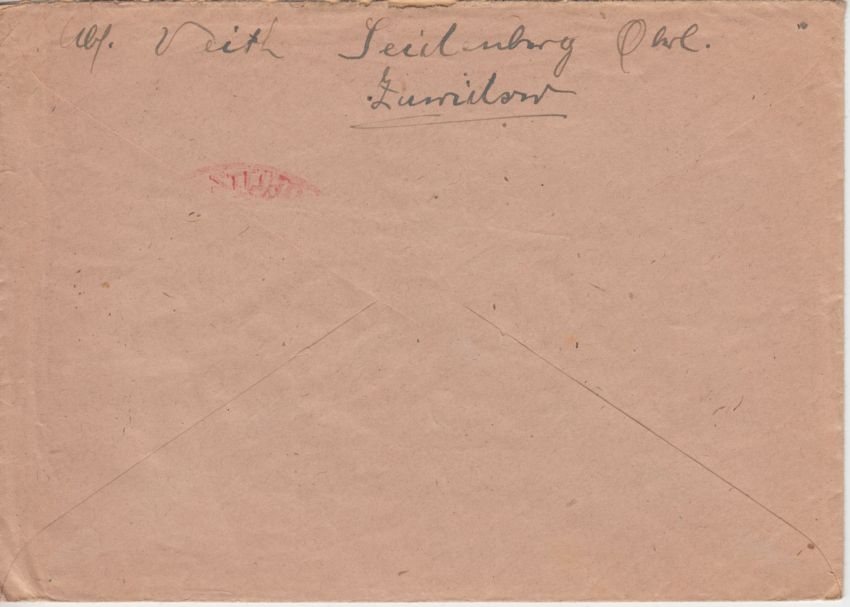 Abs. Veith Seidenberg Obrl.
Zawidow